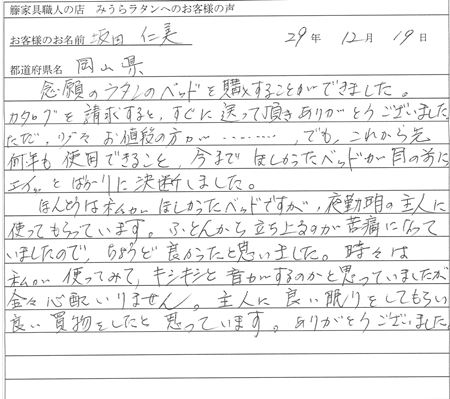 籐家具職人の店 みうらラタンへのお客様の声
お客様のお名前 坂田 仁美 29年 12月 19日
都道府県名 岡山県
念願のラタンのベッドを購入することができました。
カタログを請求すると、すぐに送って頂きありがとうございました。
ただ、少々お値段の方が………、でも、これから先
何年も使用できること、今までほしかったベッドが目の前に
エイッとばかりに決断しました。
ほんとうは私がほしかったベッドですが、夜勤明の主人に
使ってもらっています。ふとんから立ち上るのが苦痛になって
いましたので、ちょうど良かったと思いました。時々は
私が使ってみて、キシキシと音がするのかと思っていましたが
全々心配いりません。主人に良い眠りをしてもらい
良い買物をしたと思っています。ありがとうございました。